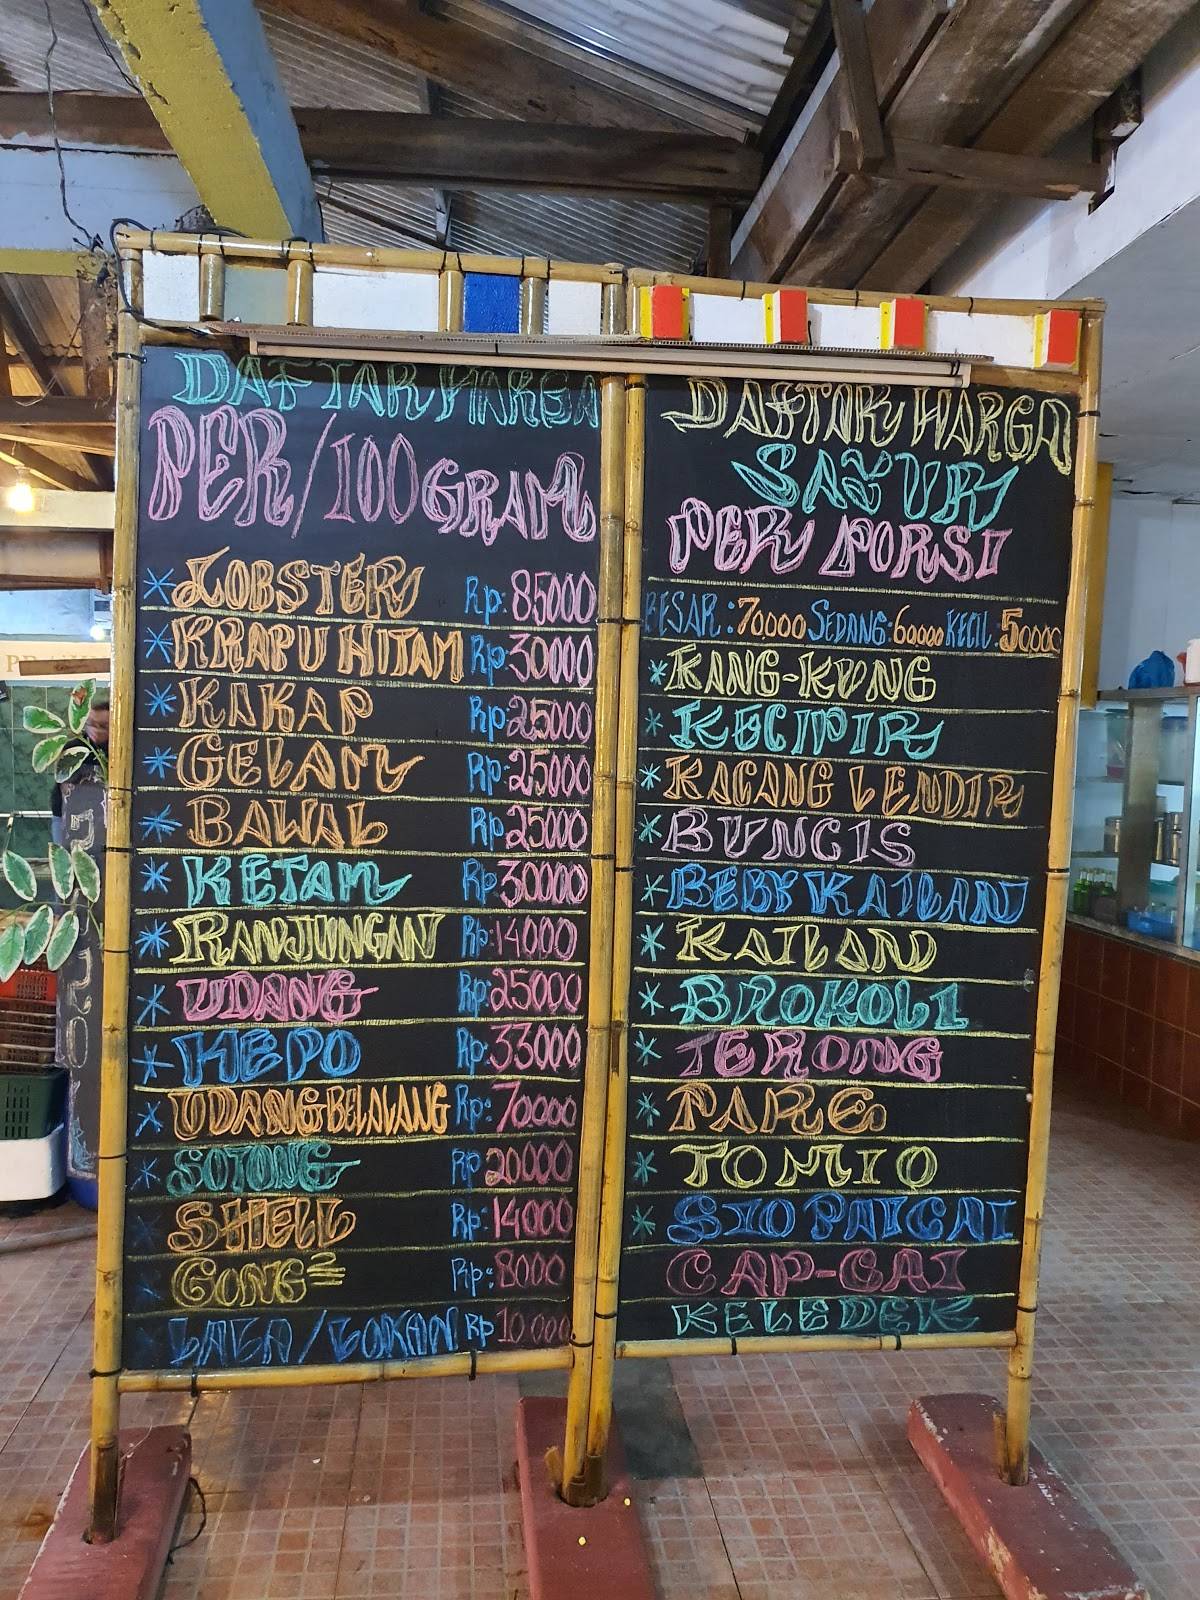 DAFTAR HARGA
PER/100 GRAM
* LOBSTER Rp: 85000
* KRAPU HITAM Rp: 30000
* KAKAP Rp: 25000
* GELAM Rp: 25000
* BAWAL Rp: 25000
* KETAM Rp: 30000
* RANJUNGAN Rp: 14000
* UDANG Rp: 25000
* HEPO Rp: 33000
* UDANG BELALANG Rp: 70000
* SOTONG Rp 20000
* SHELL Rp: 14000
* GONG2 Rp: 8000
* LALA/LOKAN Rp 10 000
DAFTAR HARGA
SAYUR
PER PORSI
BESAR: 70.000 SEDANG: 60000 KECIL: 50000
* KANG-KUNG
* KECIPIR
* KACANG LENDIR
* BUNCIS
* BEBY KAILAN
* KAILAN
* BROKOLI
* TERONG
* PARE
* TOMIO
* SIO PAICAI
CAP-CAI
KELEDEK